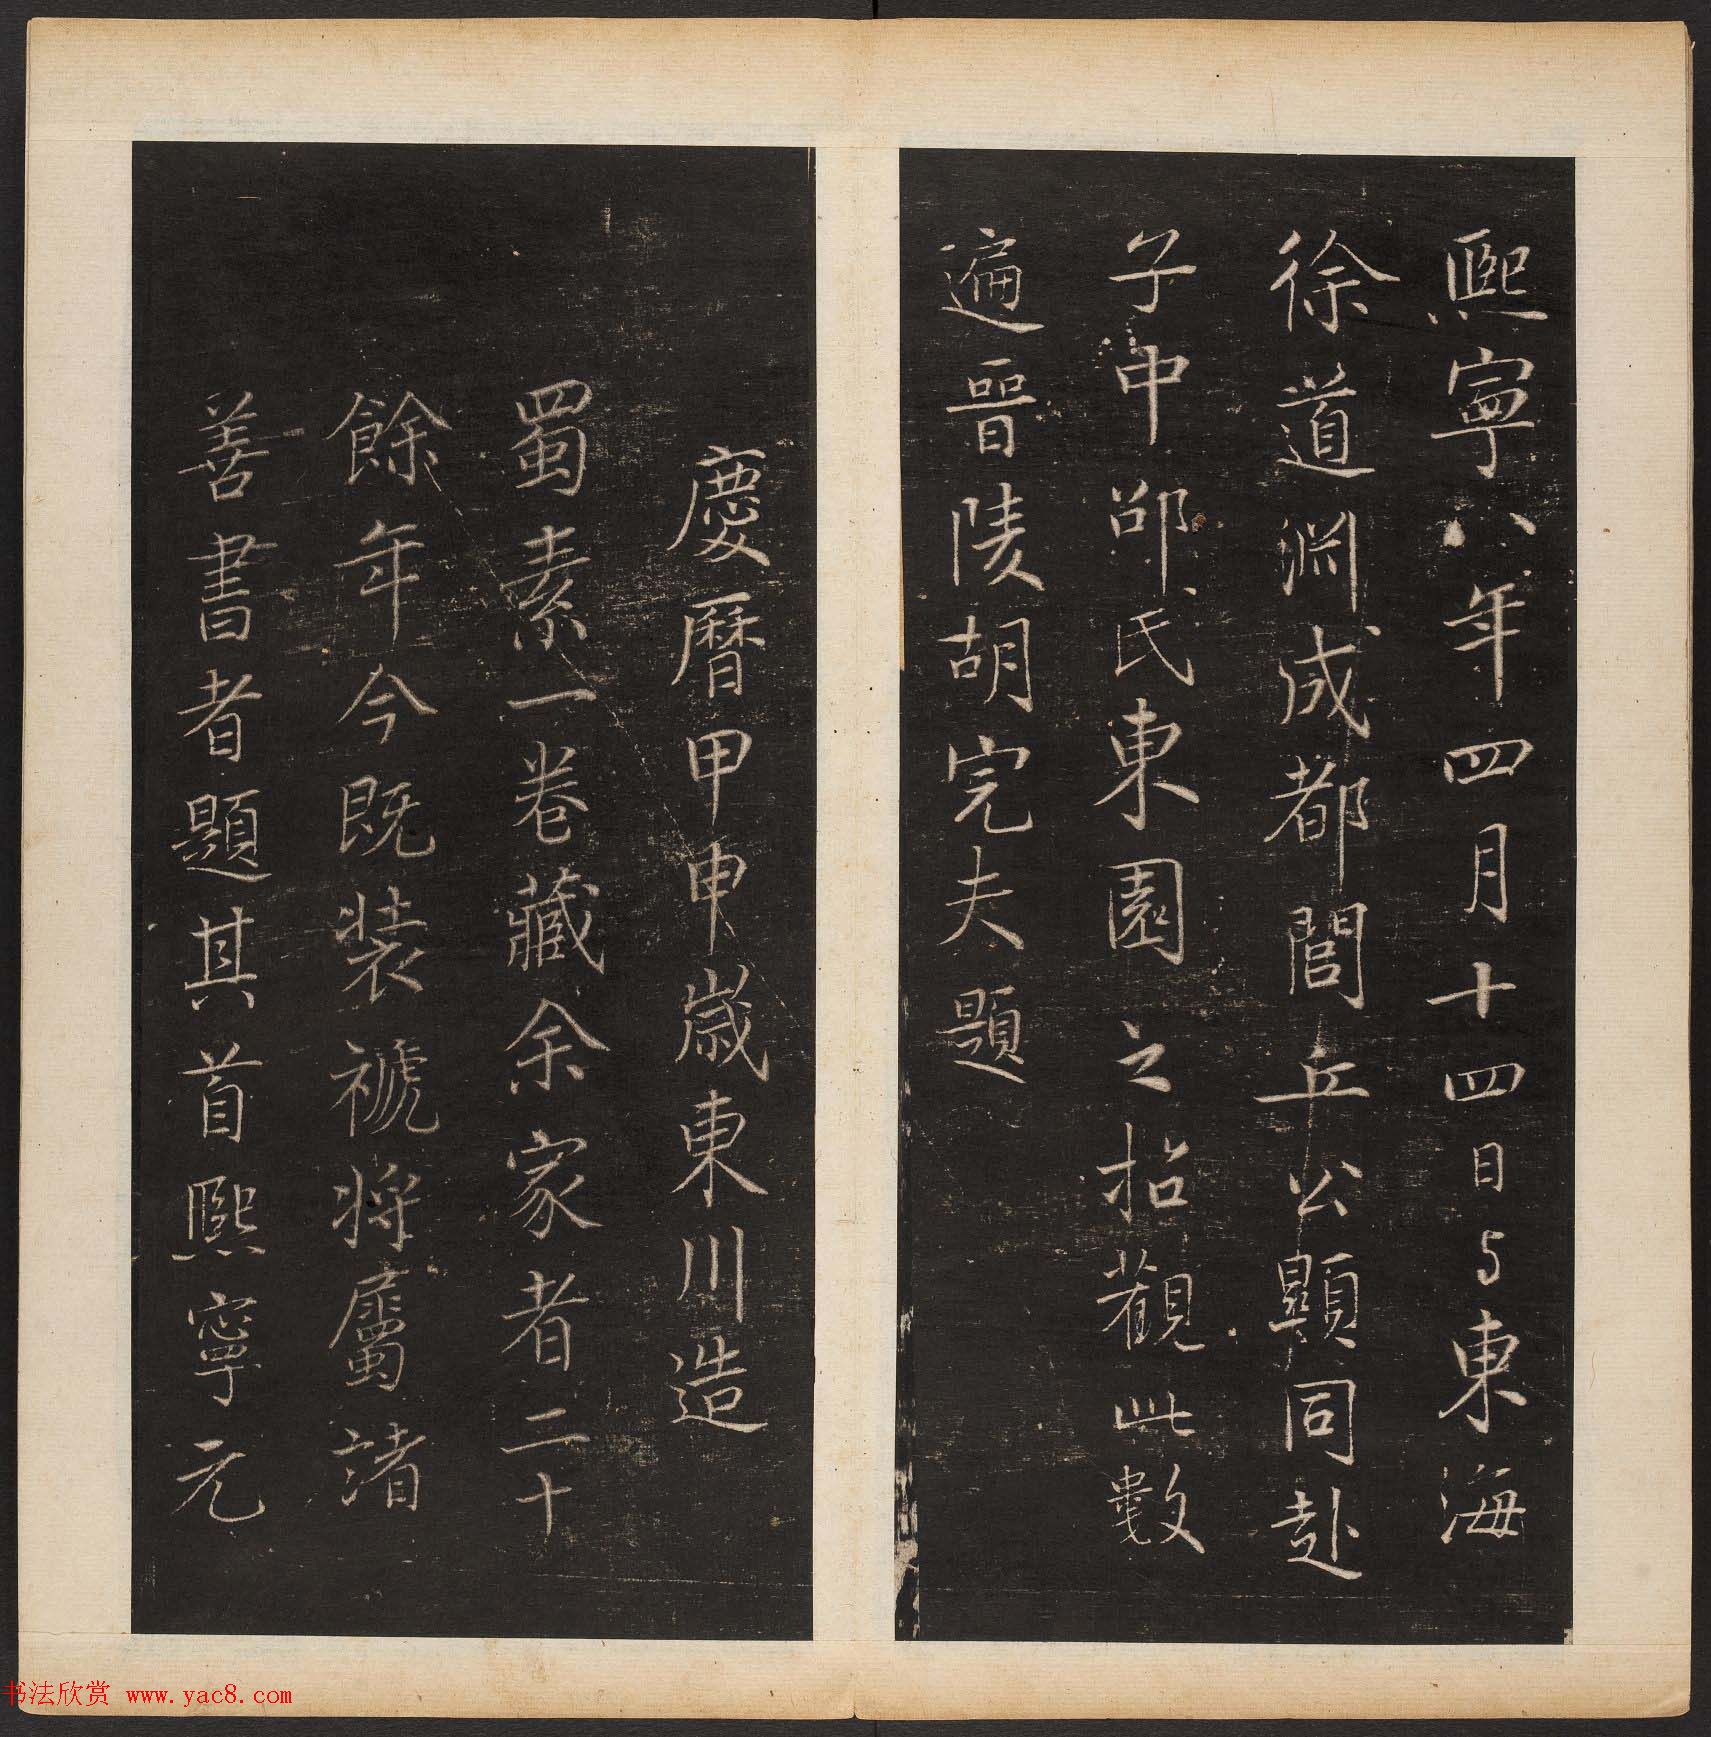 熙寧八年四月十四日与東海
徐道淵成都閭丘公顯同赴
子中邵氏東園之招觀此數
遍晉陵胡完夫題
慶曆甲申歲東川造
蜀素一卷藏余家者二十
餘年今既裝褫將屬諸
善書者題其首熙寧元
书法欣赏 www.yac8.com